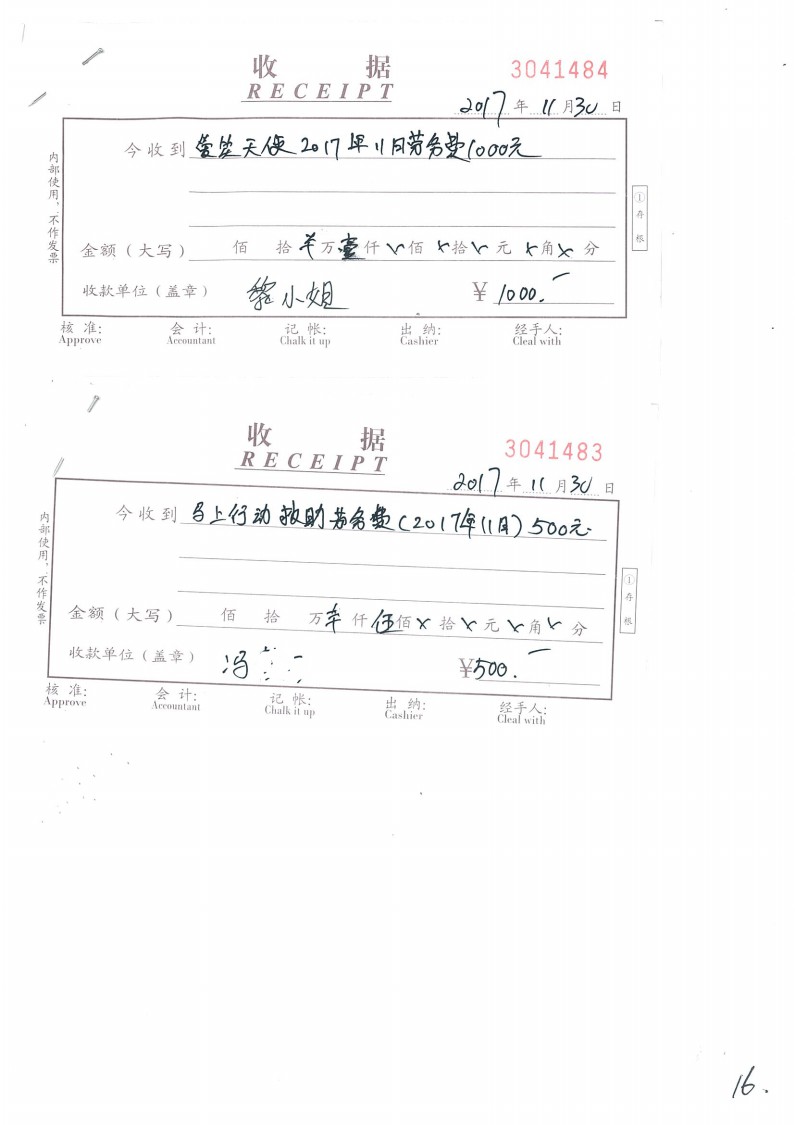 收 据 3041484
RECEIPT
2017 年 11 月 30 日
内部使用，不作发票
今收到 萤笠天使2017年11月劳务费1000元
①存根
金额（大写） 佰 拾 半 万 壹 仟 ㄨ 佰 ㄨ 拾 ㄨ 元 ㄨ 角 ㄨ 分
收款单位（盖章） 黎小姐 ¥ 1000.—
核 准: 会 计: 记 帐: 出 纳: 经手人:
Approve Accountant Chalk it up Cashier Cleal with
收 据 3041483
RECEIPT
2017 年 11 月 30 日
内部使用，不作发票
今收到 马上行动救助劳务费（2017年11月）500元.
①存根
金额（大写） 佰 拾 万 半 仟 伍 佰 ㄨ 拾 ㄨ 元 ㄨ 角 ㄨ 分
收款单位（盖章） 冯 ¥500.—
核 准: 会 计: 记 帐: 出 纳: 经手人:
Approve Accountant Chalk it up Cashier Cleal with
16.